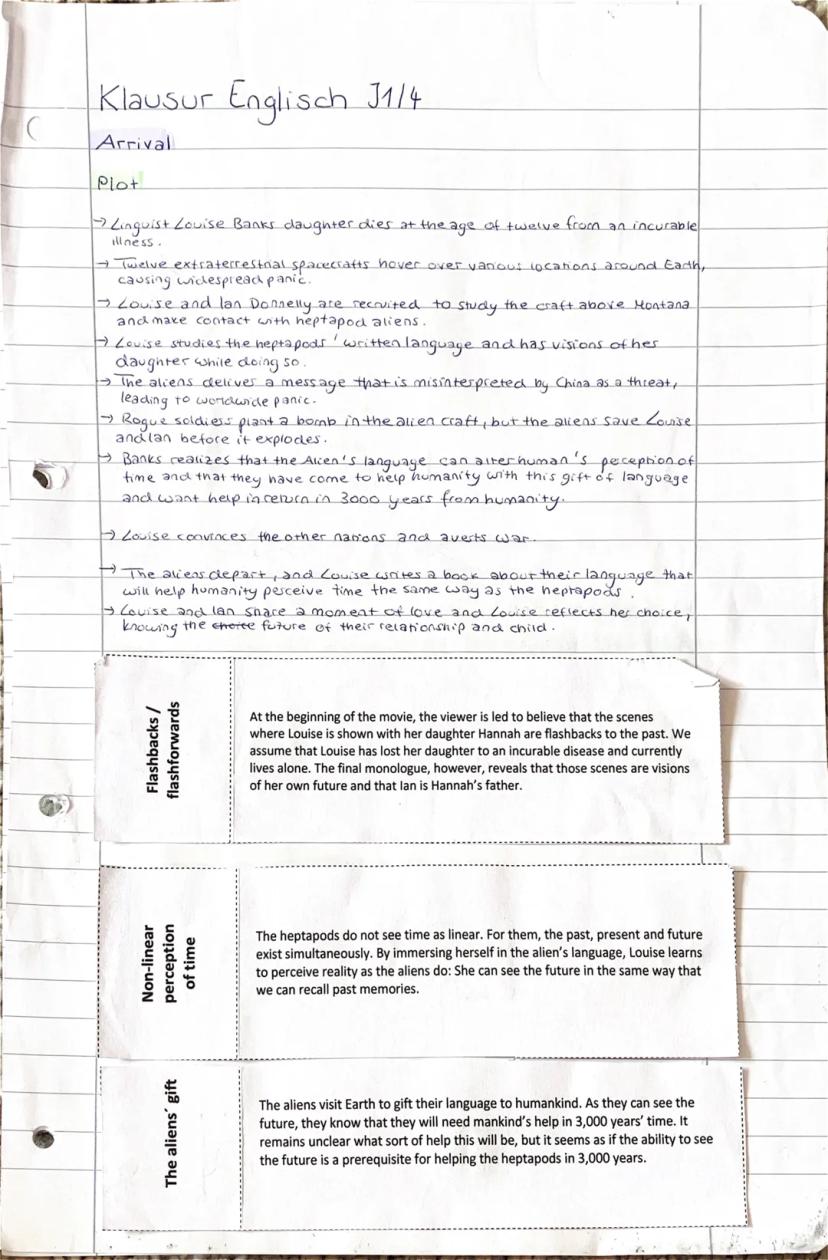 Klausur Englisch J1/4
Arrival
Plot
→ Linguist Louise Banks daughter dies at the age of twelve from an incurable
illness.
→ Twelve extraterrestrial spacecrafts hover over various locations around Earth,
causing widespread panic.
→ Louise and Ian Donnelly are recruited to study the craft above Montana
and make contact with heptapod aliens.
→ Louise studies the heptapods' written language and has visions of her
daughter while doing so.
→ The aliens delivers a message that is misinterpreted by China as a threat,
leading to worldwide panic.
→ Rogue soldiers plant a bomb in the alien craft, but the aliens save Louise
and Ian before it explodes.
→ Banks realizes that the Alien's language can alter human's perception of
time and that they have come to help humanity with this gift of language
and want help in return in 3000 years from humanity.
→ Louise convinces the other nations and averts war.
→ The aliens depart, and Louise writes a book about their language that
will help humanity perceive time the same way as the heptapods.
→ Louise and Ian share a moment of love and Louise reflects her choice,
knowing the choice future of their relationship and child.
Flashbacks /
flashforwards
At the beginning of the movie, the viewer is led to believe that the scenes
where Louise is shown with her daughter Hannah are flashbacks to the past. We
assume that Louise has lost her daughter to an incurable disease and currently
lives alone. The final monologue, however, reveals that those scenes are visions
of her own future and that Ian is Hannah's father.
Non-linear
perception
of time
The heptapods do not see time as linear. For them, the past, present and future
exist simultaneously. By immersing herself in the alien's language, Louise learns
to perceive reality as the aliens do: She can see the future in the same way that
we can recall past memories.
The aliens´ gift
The aliens visit Earth to gift their language to humankind. As they can see the
future, they know that they will need mankind's help in 3,000 years' time. It
remains unclear what sort of help this will be, but it seems as if the ability to see
the future is a prerequisite for helping the heptapods in 3,000 years.